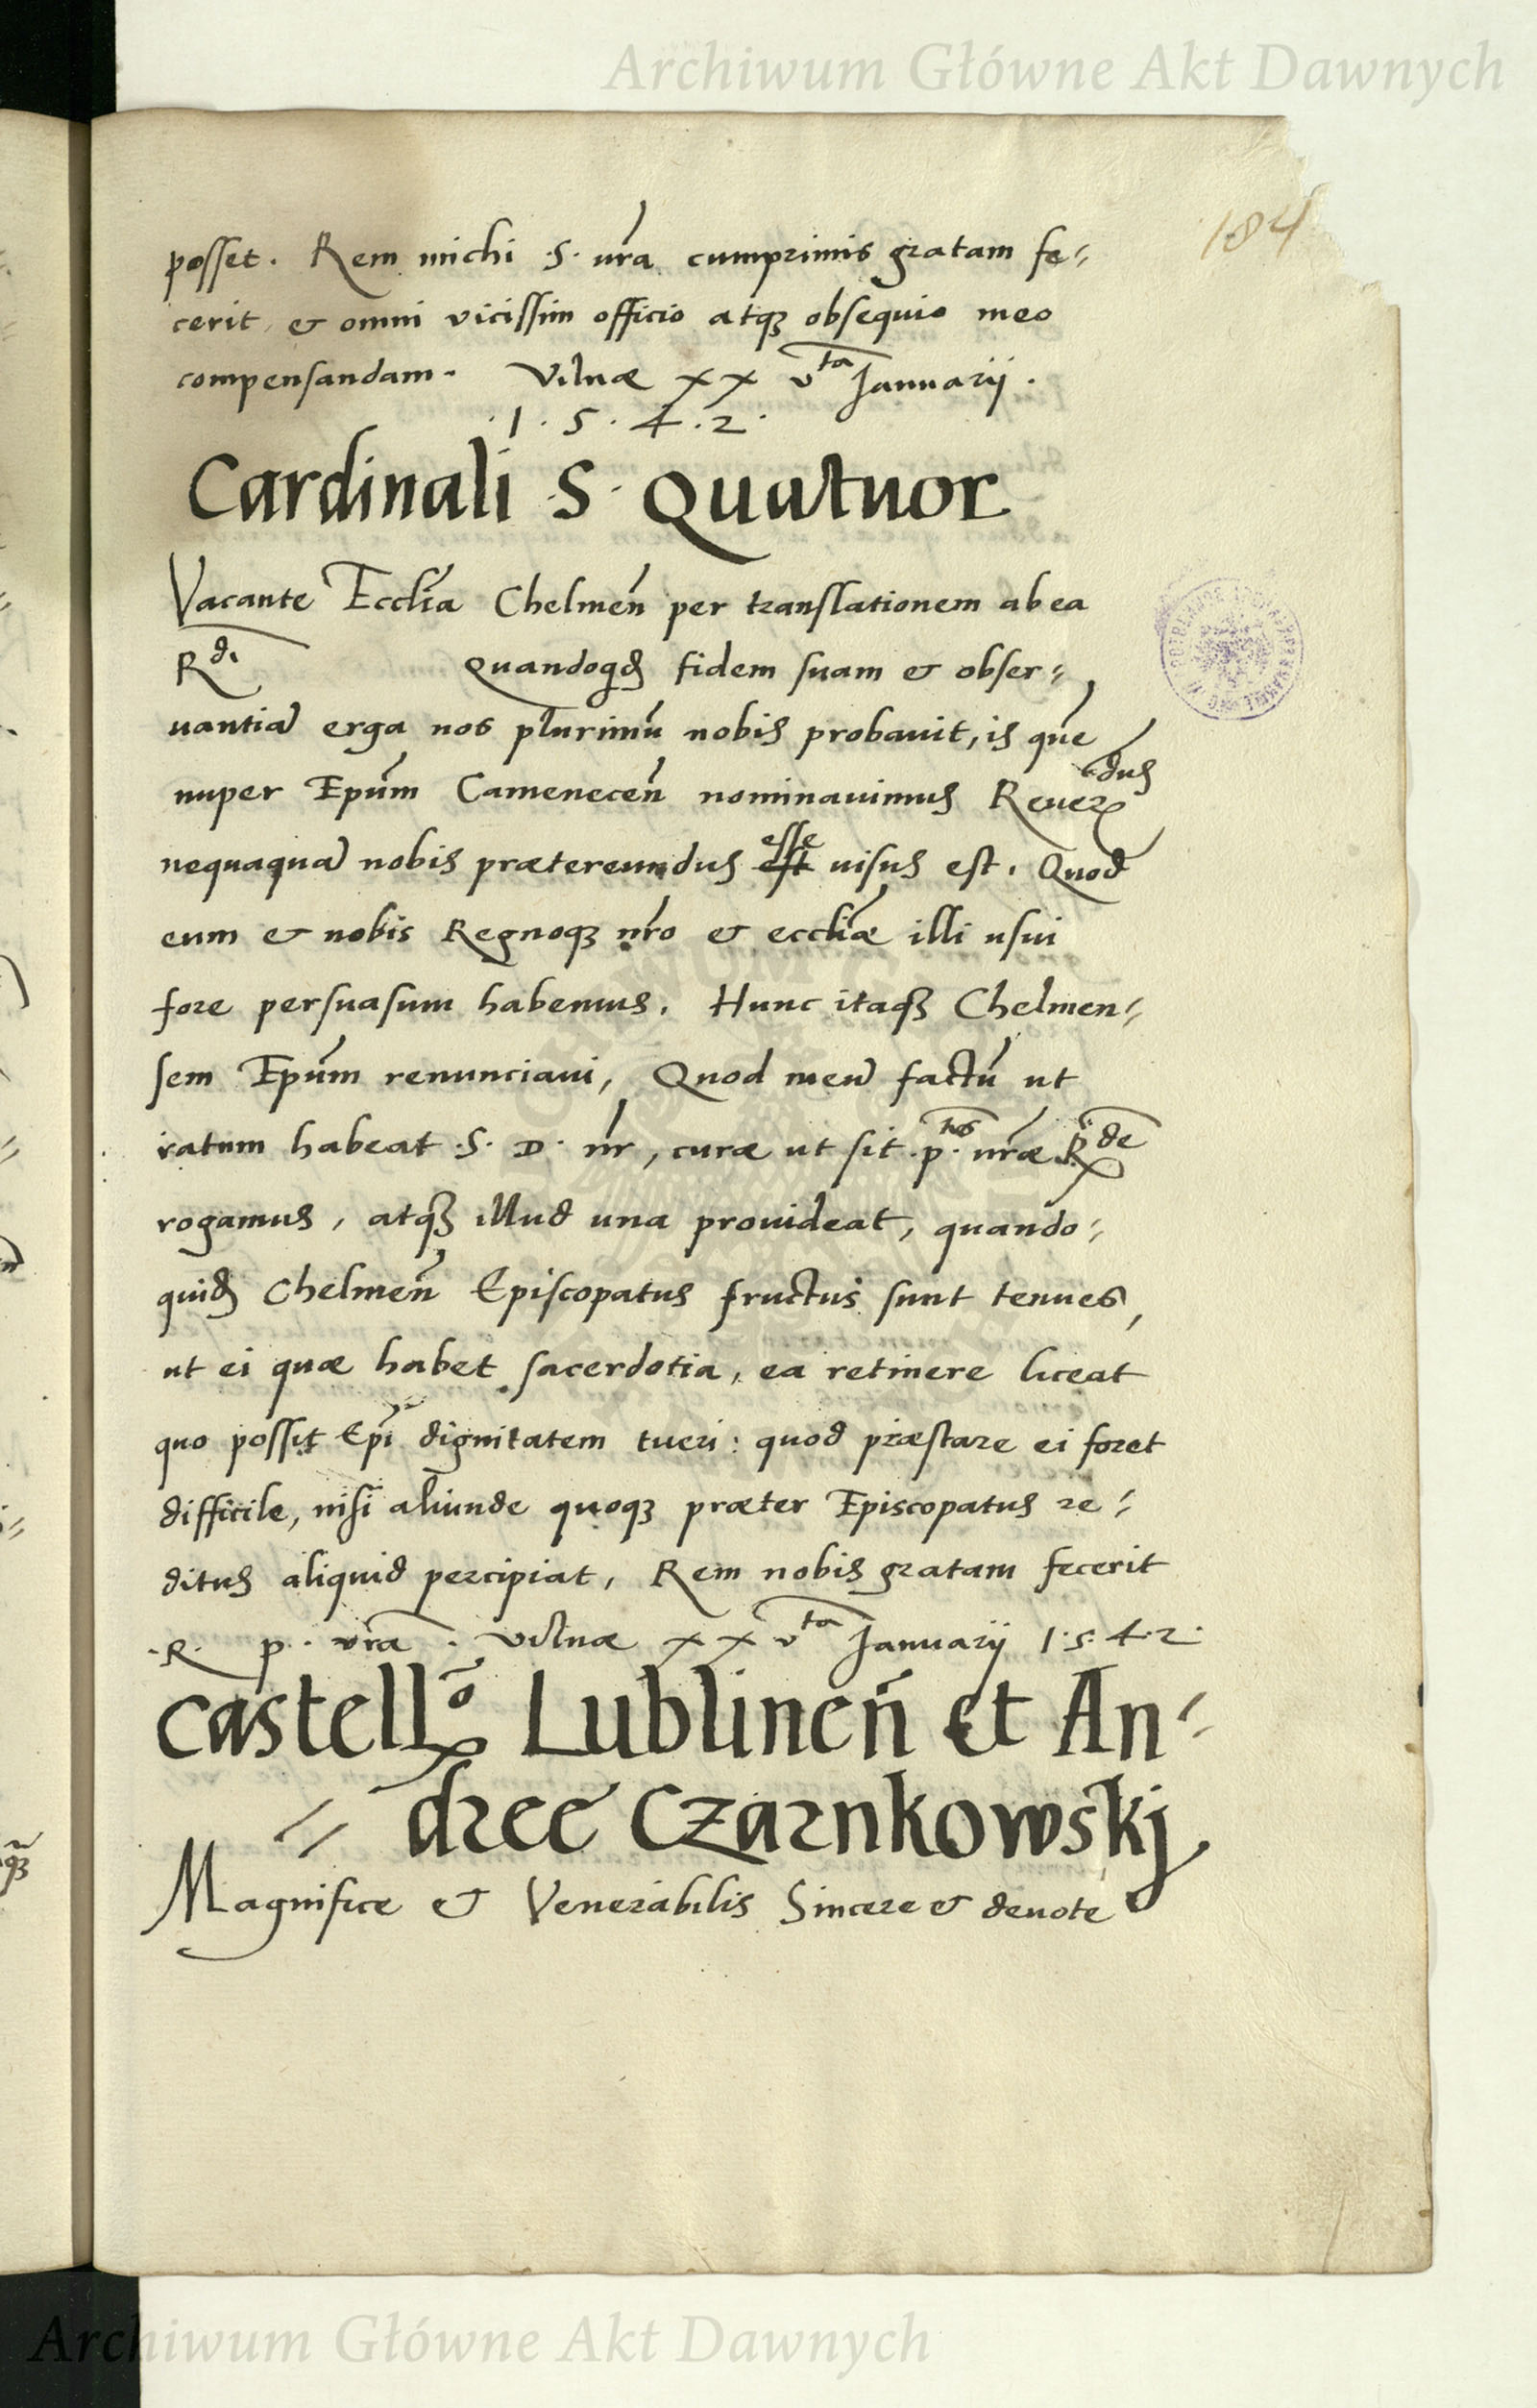 Archiwum Główne Akt Dawnych
184
posset. Rem michi .S. vr̃a cumprimis gratam fe=
cerit, & omni vicissim officio atq3 obsequio meo
compensandam. Vilnæ XX vta Januarij.
.1.5.4.2.
Cardinali S. Quatuor
Vacante Eccliã Chelmeñ per translationem ab ea
Rdi Quandoqd fidem suam & obser=
uantiã erga nos plurimũ nobis probauit, is quẽ
nuper Epũm Cameneceñ nominauimus Reuerdus
nequaquã nobis prætereundus est esse uisus est. Quod
eum & nobis Regnoq3 nr̃o & eccliæ̃ illi usui
fore persuasum habemus. Hunc itaq3 Chelmen=
sem Epũm renunciaui, Quod meũ factũ ut
ratum habeat .S. D. nr̃, curæ ut sit .ptas. nr̃æ Rde
rogamus, atq3 illud una prouideat, quando=
quid Chelmeñ Episcopatus fructus sunt tenues,
ut ei quæ habet sacerdotia, ea retinere liceat
quo possit Epĩ dignitatem tueri: quod præstare ei foret
difficile, nisi aliunde quoq3 præter Episcopatus re=
ditus aliquid percipiat, Rem nobis gratam fecerit
.R. p. vr̃a. Vilnæ XX vta Januarij 1.5.4.2.
Castello Lublineñ et An=
= dree Czarnkowskj
Magnifice & Venerabilis Sincere & deuote
Archiwum Główne Akt Dawnych